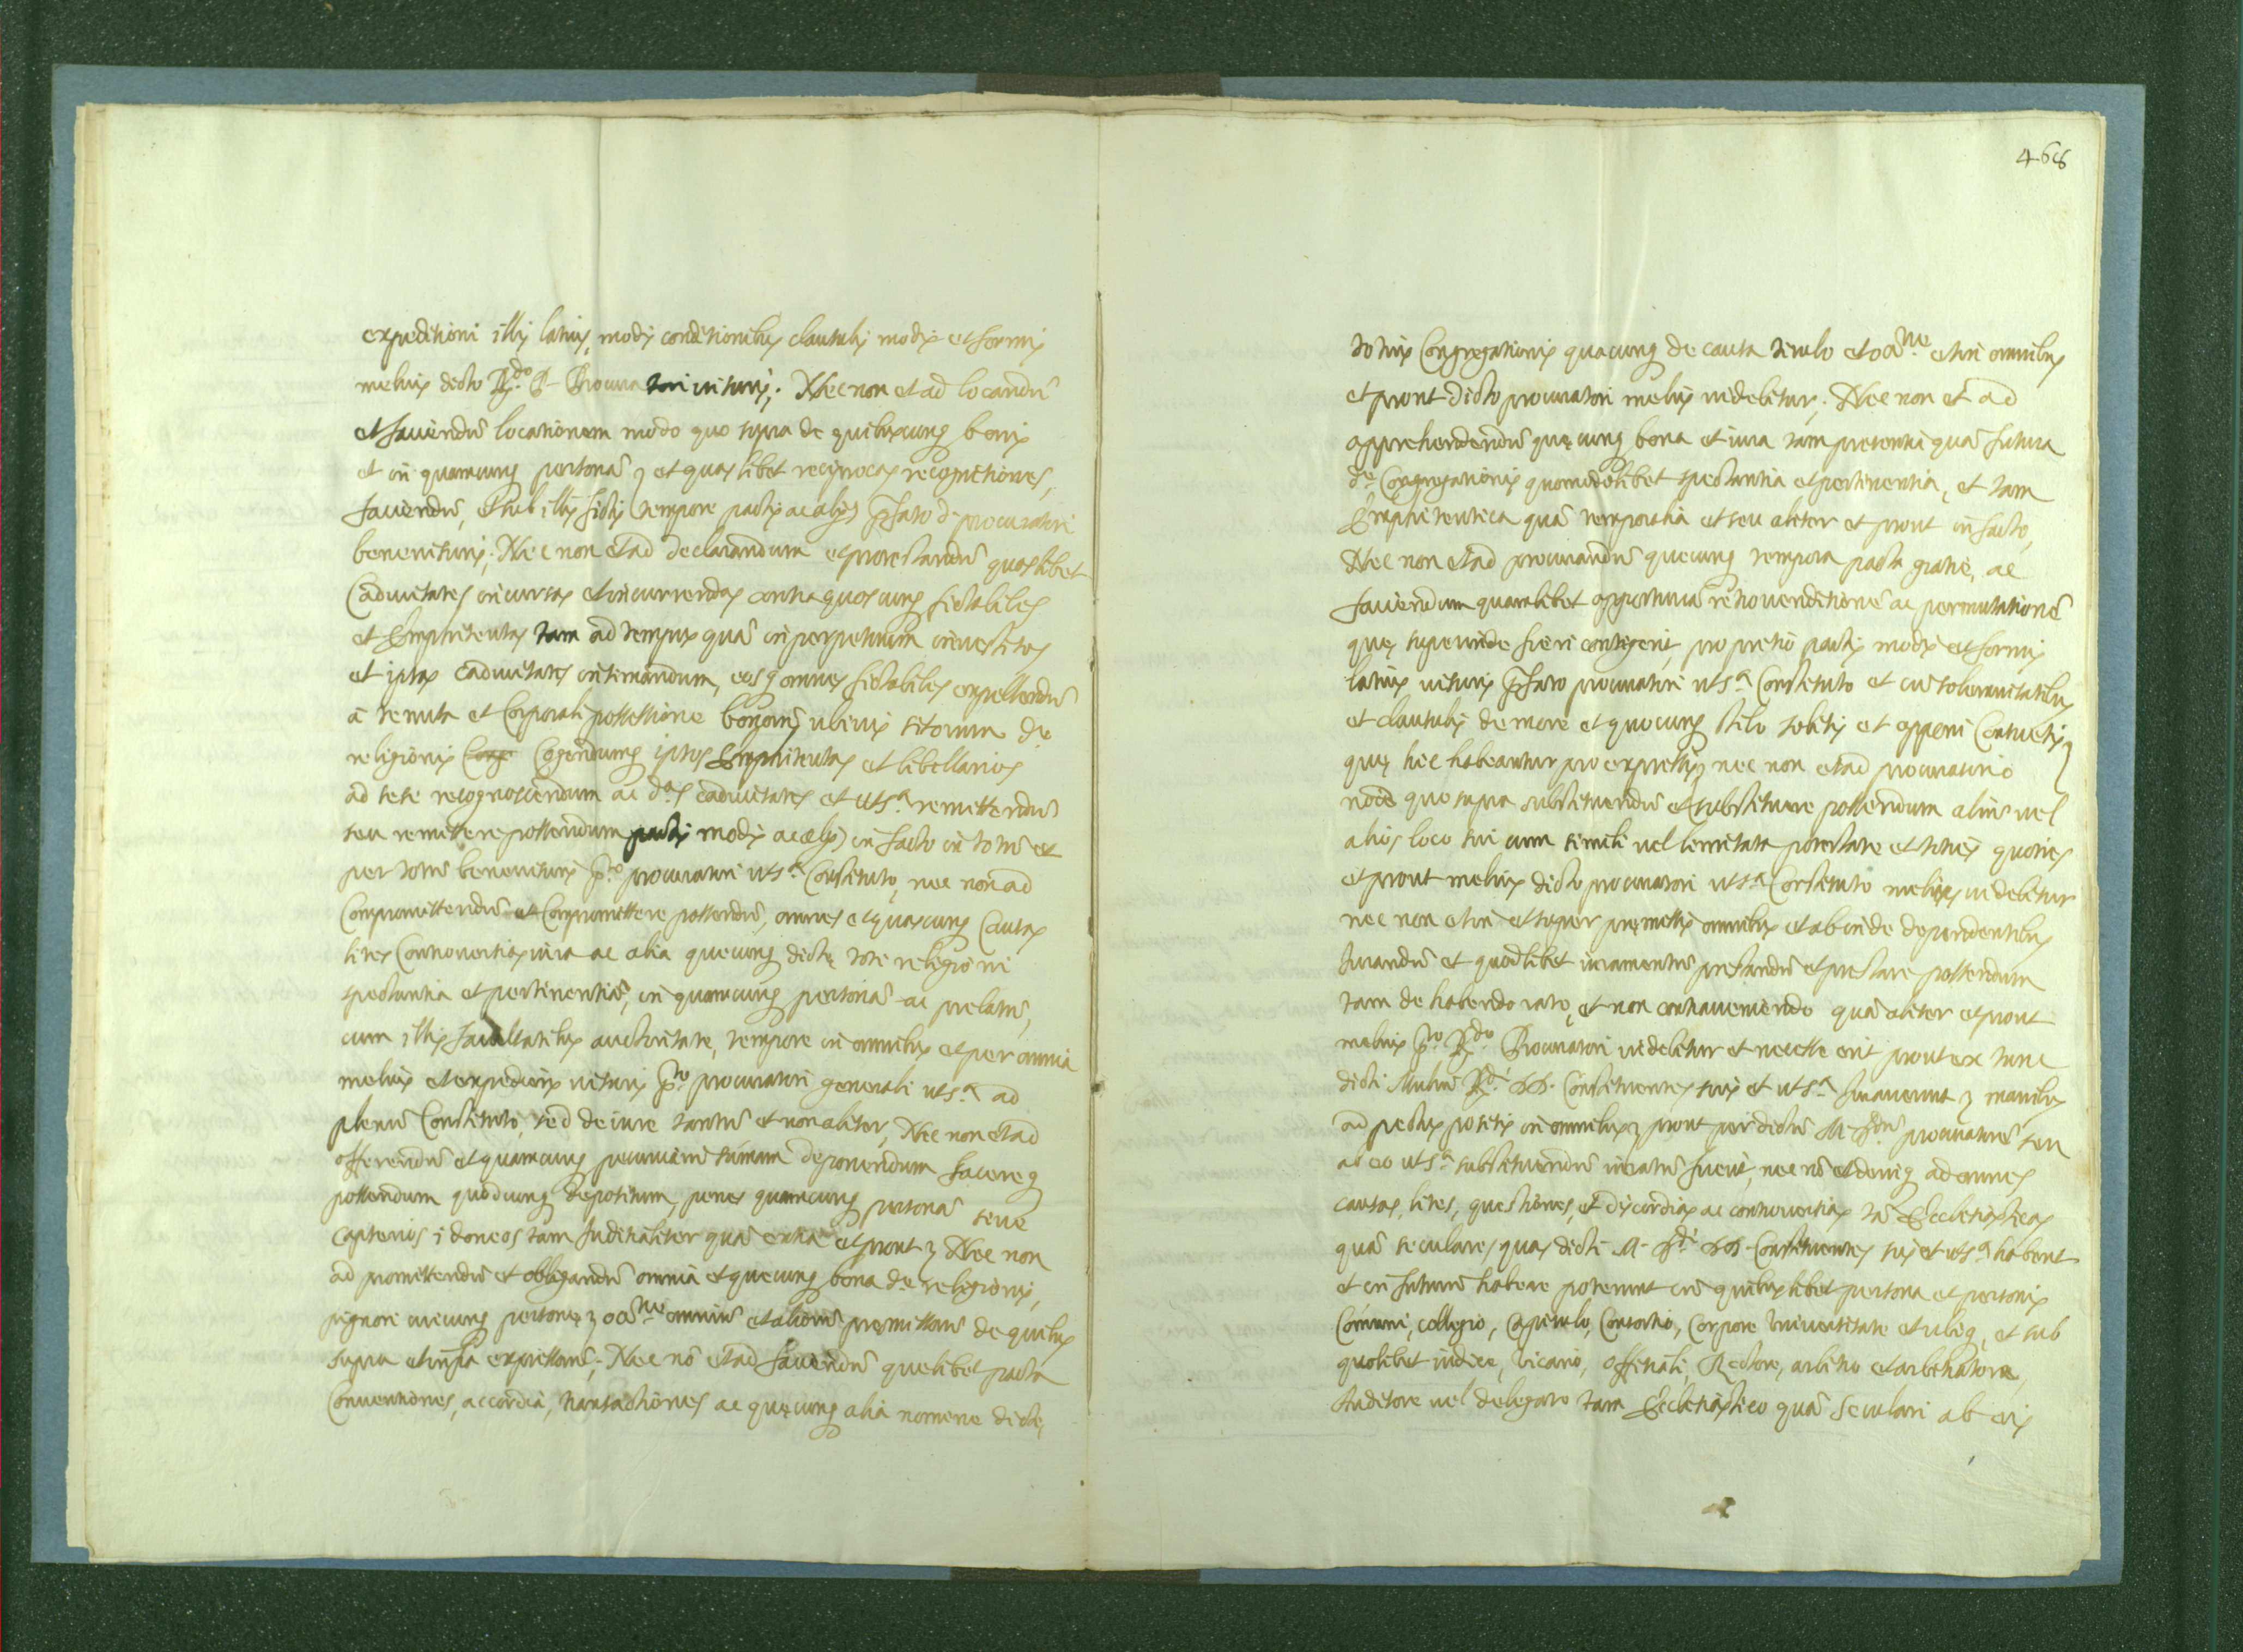 expeditioni illis latius, modis conditionibus clausulis modis et formis
melius dicto R.do P. Procuratori visuris; Nec non et ad locandũ
et faciendũ locationem modo quo supra de quibuscunq bonis
et in quamcunq personã, et quaslibet reciprocas recognitiones,
faciendũ, et sub illis fictis tempore pactis ac alijs p̃fato d. procuratori
benevisuris; Nec non et ad declarandum et protestandũ quaslibet
Caducitates incursas et incurrendas contra quoscunq fictabiles
et Emphiteutas tam ad tempus quã in perpetuum investitos
et ipsas caducitates intimandum, eosq omnes fictabiles expellendũ
à tenuta et Corporali possessione bonorũ ubivis sitorum d.e
religionis Coge Cogendumq ipsos Emphiteutas et libellarios
ad sese recognoscendum ac d.as caducitates et uts.a remittendũ
seu remittere possendum pactis modis ac alijs in facto in totũ et
per totũ benevisuris p.to procuratori uts.a Constituto, nec non ad
Compromittendũ et Compromittere possendũ, omnes et quascunq Causas
lites Controversias iura ac alia quecunq dictę toti religioni
spectantia et pertinentia, in quamcunq personã ac prelatũ,
cum illis facultatibus auctoritate, tempore in omnibus et per omnia
melius et expedieris visuris p.to procuratori generali uts.a ad
plenũ Constituto, sed de iure tantũ et non aliter, Nec non et ad
offerendũ et quamcunq pecuniarũ sũmam deponendum facereq
possendum quodcunq depositum, penes quamcunq personã sive
capserios idoneos tam Juditialiter quã extra et prout Nec non
ad promittendũ et obligandũ omnia et quecunq bona d.e religionis,
pignori cuicunq personę oca.ne omniũ et aliorũ premissorũ de quibus
supra et infra expressorũ; Nec nõ et ad faciendũ quelibet pacta
Conventiones, accordia, transactiones ac quęcunq alia nomine dictę
468
totius Congregationis quacunq de causa titulo et oca.ne et in omnibus
et prout dicto procuratori melius videbitur; Nec non et ad
apprehendendũ quęcunq bona et iura tam presentia quã futura
d.e Congregationis quomodolibet spectantia et pertinentia, et tam
Emphiteutica quã temporalia et seu aliter et prout in facto,
Nec non et ad procurandũ quecunq tempora pacta gratie, ac
faciendum quamlibet opportunã retrovenditionẽ ac permutationẽ
quę superinde fieri contigerit, pro pretio pactis modis et formis
latius visuris p̃fato procuratori uts.a Constituto et cũ solemnitatibus
et clausulis de more et quocunq stilo solitis et apponi Consuetis
quę hic habeantur pro expressis, nec non et ad procuratorio
noĩe quo supra substituendũ et substituere possendum aliũ vel
alios loco sui cum simili vel limitata potestate et toties quoties
et prout melius dicto procuratori uts.a Constituto melius videbitur
nec non et in et super pręmissis omnibus et ab inde dependentibus
Jurandũ et quodlibet iuramentũ prestandũ et prestare possendum
tam de habendo rato, et non contraveniendo quã aliter et prout
melius p.to R.do Procuratori videbitur et necesse erit prout ex tunc
dicti Multũ R.di DD. Constituentes suis et uts.a Juraverunt manibus
ad pectus positis in omnibus prout per dictũ M. R.dũ procuratorẽ seu
ab eo uts.a substituendũ iuratũ fuerit, nec nõ et deniq ad omnes
causas, lites, questiones, et discordias ac controversias tã Ecclesiasticas
quã seculares, quas dicti M. R.di DD. Constituentes suis et uts.a habent
et in futurũ habere poterunt cũ quibuslibet persona et personis
Cõmuni, collegio, Capitulo, Consortio, Corpore Universitate et ubiq, et sub
quolibet iudice, Vicario, offitiali, Rectore, arbitro et arbitratore,
Auditore vel delegato tam Ecclesiastico quã Seculari ab eis